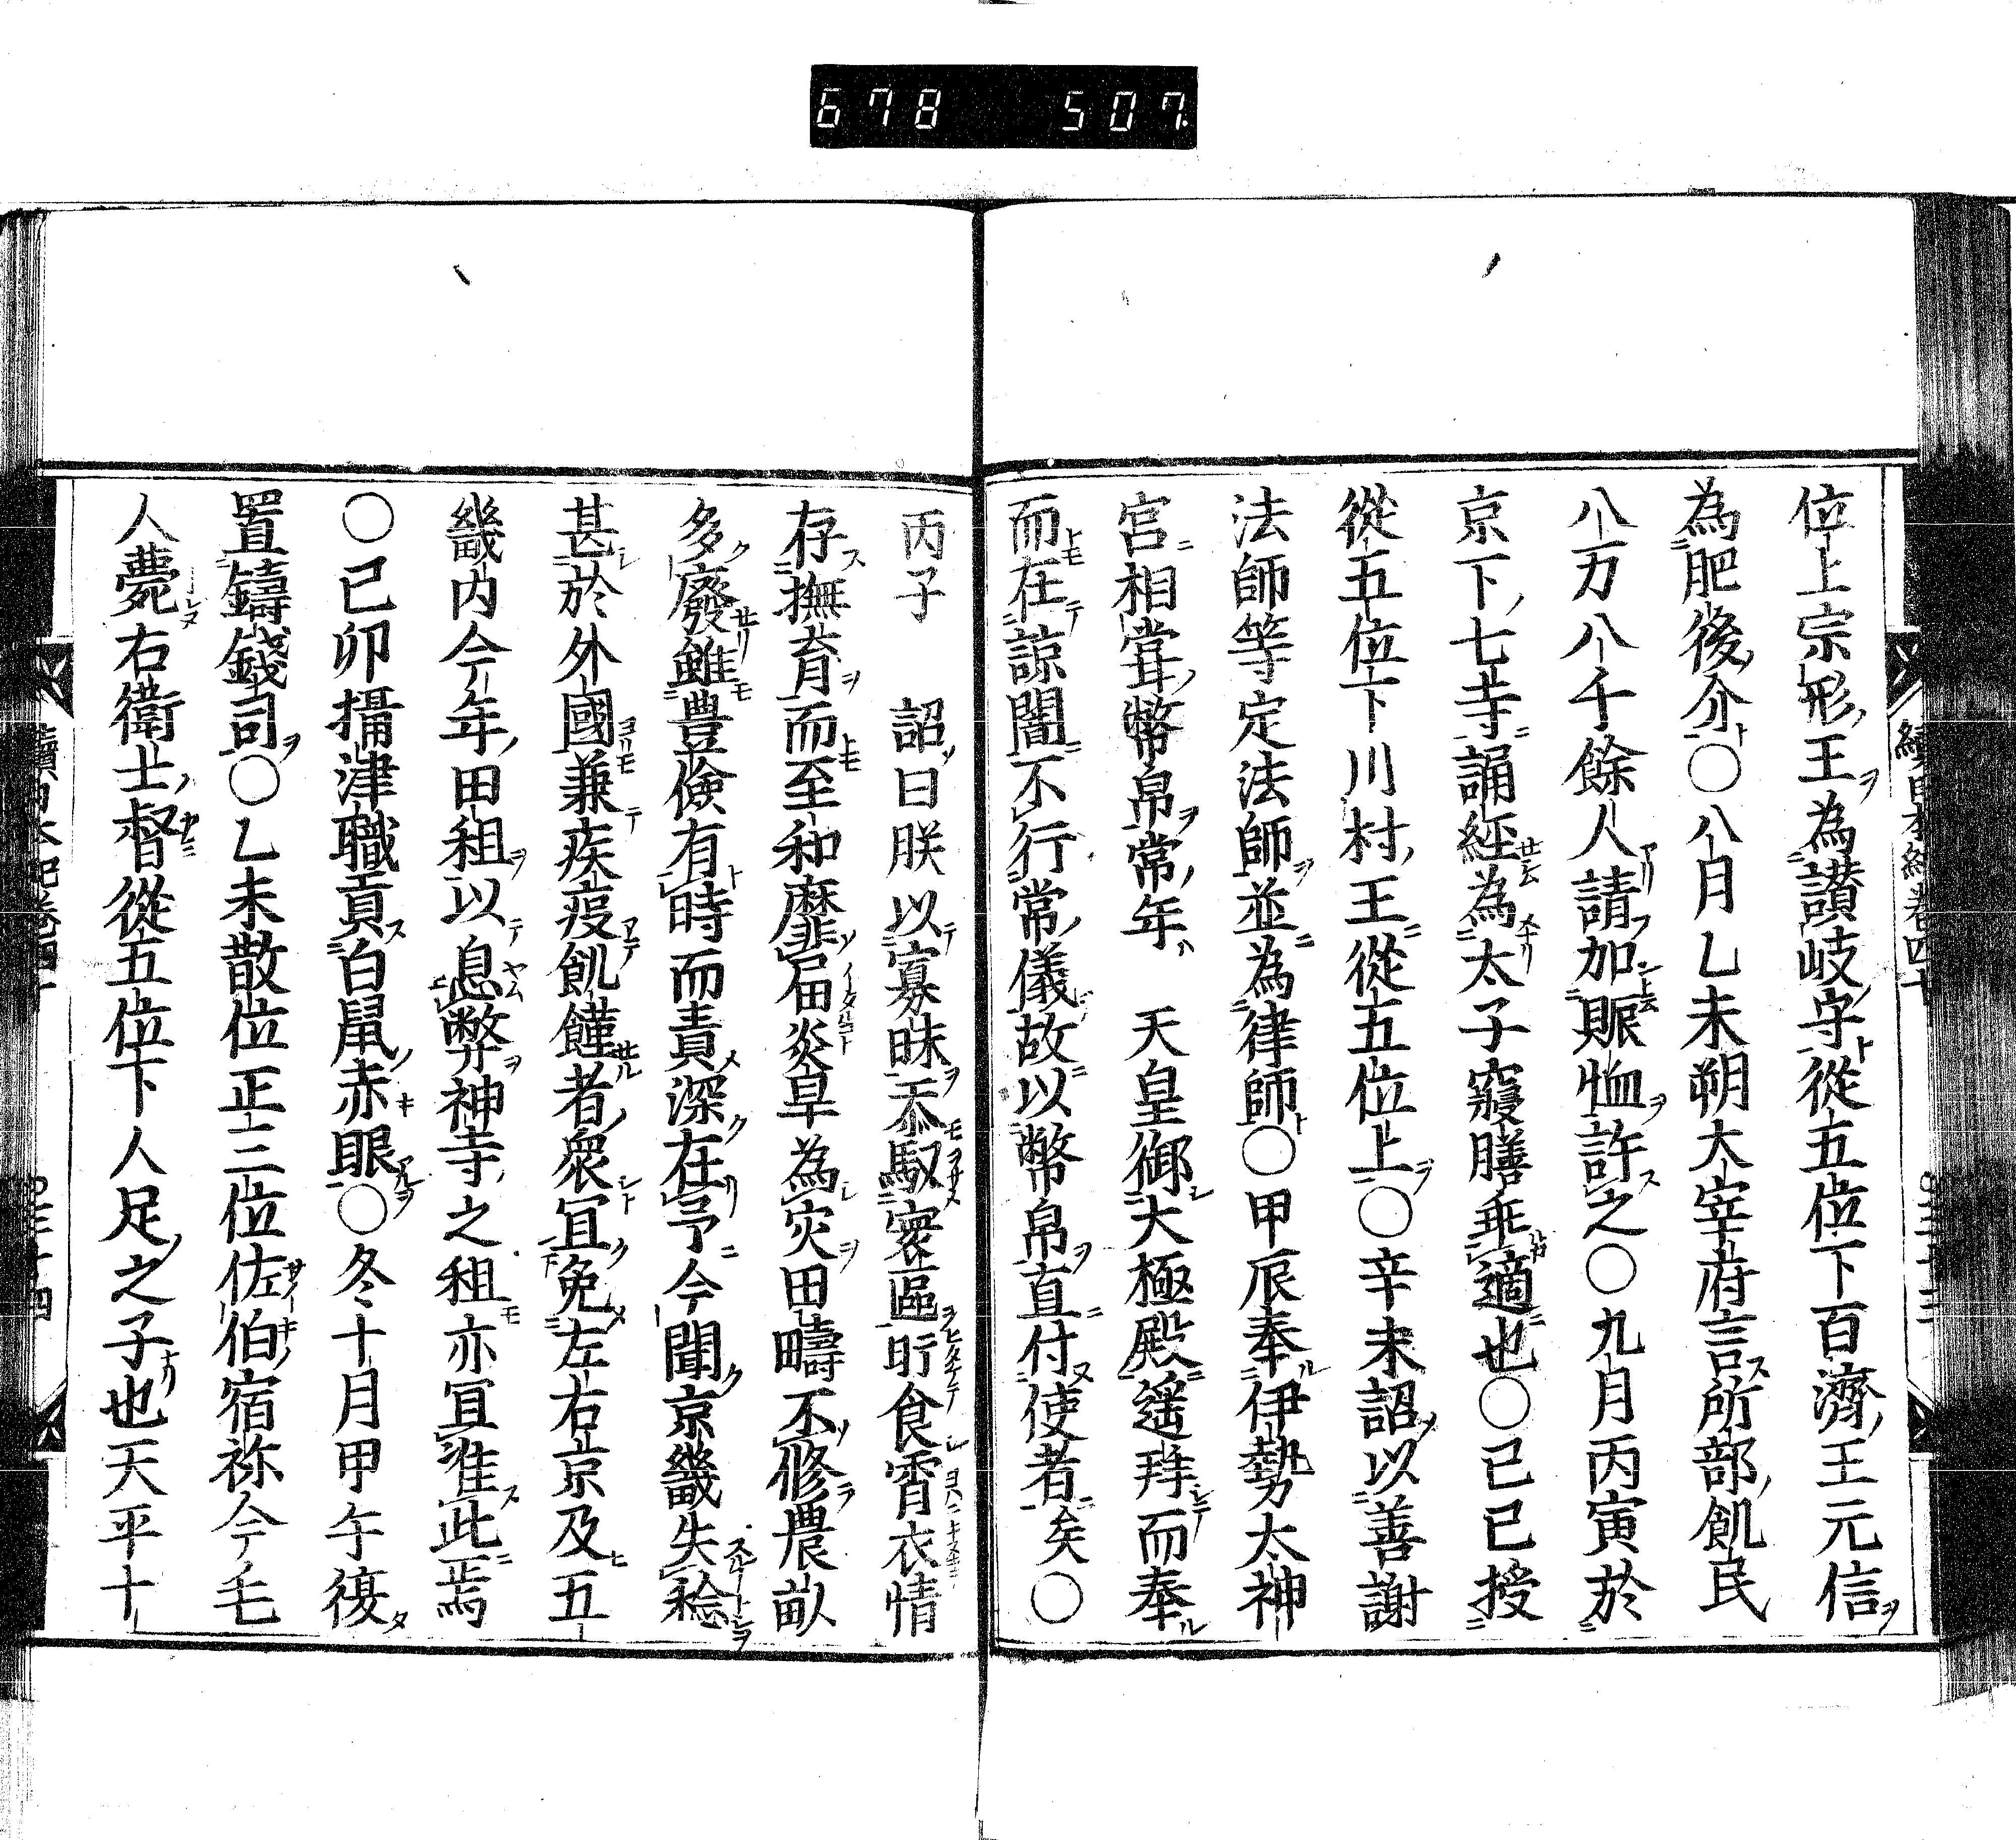 678 507
位上宗形王為讃岐守從五位下百濟王元信
為肥後介○八月乙未朔大宰府言所部飢民
八万八千餘人請加賑恤許之○九月丙寅於
京下七寺誦経為太子寢膳乖適也○己巳授
從五位下川村王從五位上○辛未詔以善謝
法師等定法師並為律師○甲辰奉伊勢太神
宮相甞幣帛常年　天皇御大極殿遥拜而奉
而在諒闇不行常儀故以幣帛直付使者矣○
丙子　詔曰朕以寡昧忝馭寰區旰食宵衣情
存撫育而至和靡屆炎旱為灾田疇不修農畝
多廢雖豊儉有時而責深在予今聞京畿失稔
甚於外國兼疾疫飢饉者衆冝免左右京及五
畿内今年田租以息弊神寺之租亦冝准此焉
○己卯攝津職貢白鼠赤眼○冬十月甲午復
置鑄錢司○乙未散位正三位佐伯宿祢今毛
人薨右衛士督從五位下人足之子也天平十